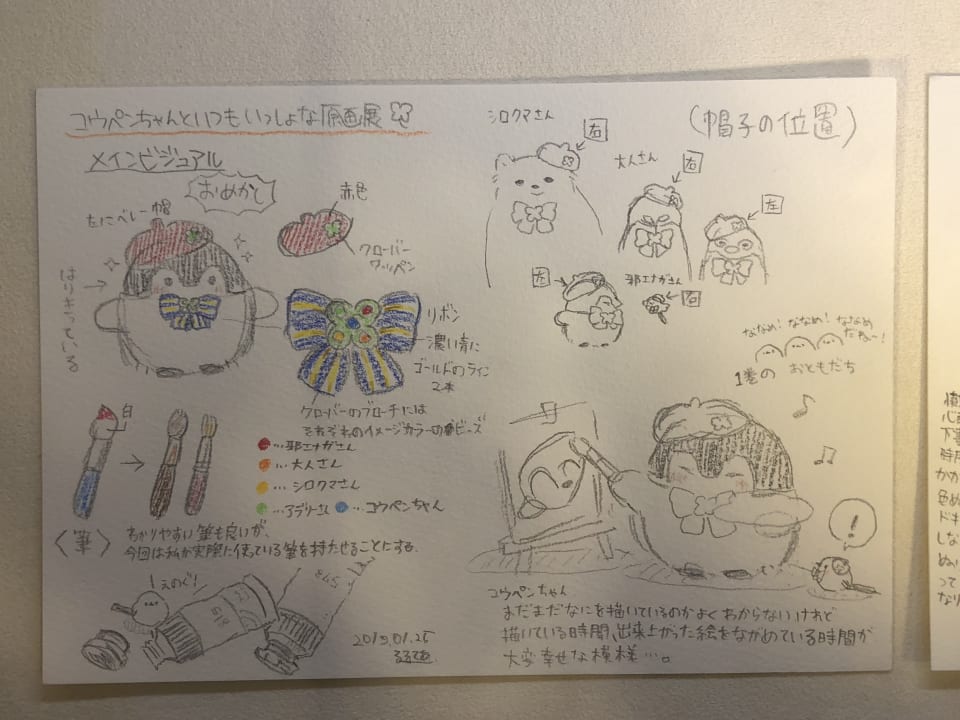 コウペンちゃんといつもいっしょな原画展
メインビジュアル
おめかし
左にベレー帽
赤色
クローバー
ワッペン
はりきっている
リボン
濃い青に
ゴールドのライン
2本
クローバーのブローチには
それぞれのイメージカラーのビーズ
…邪エナガさん
…大人さん
…シロクマさん
…アデリーさん
…コウペンちゃん
白
〈筆〉
わかりやすい筆も良いが、
今回は私が実際に使っている筆を持たせることにする。
えのぐ!
2019.01.25
るるてあ
(帽子の位置)
シロクマさん
右
大人さん
右
左
左
邪エナガさん
右
ななめ! ななめ! ななめ
だねー!
1巻の おともだち
!
コウペンちゃん
まだまだなにを描いているのかよくわからないけれど
描いている時間、出来上がった絵をながめている時間が
大変幸せな模様…。
かか
色ぬ
ドキ
しな
ぬり
って
なり